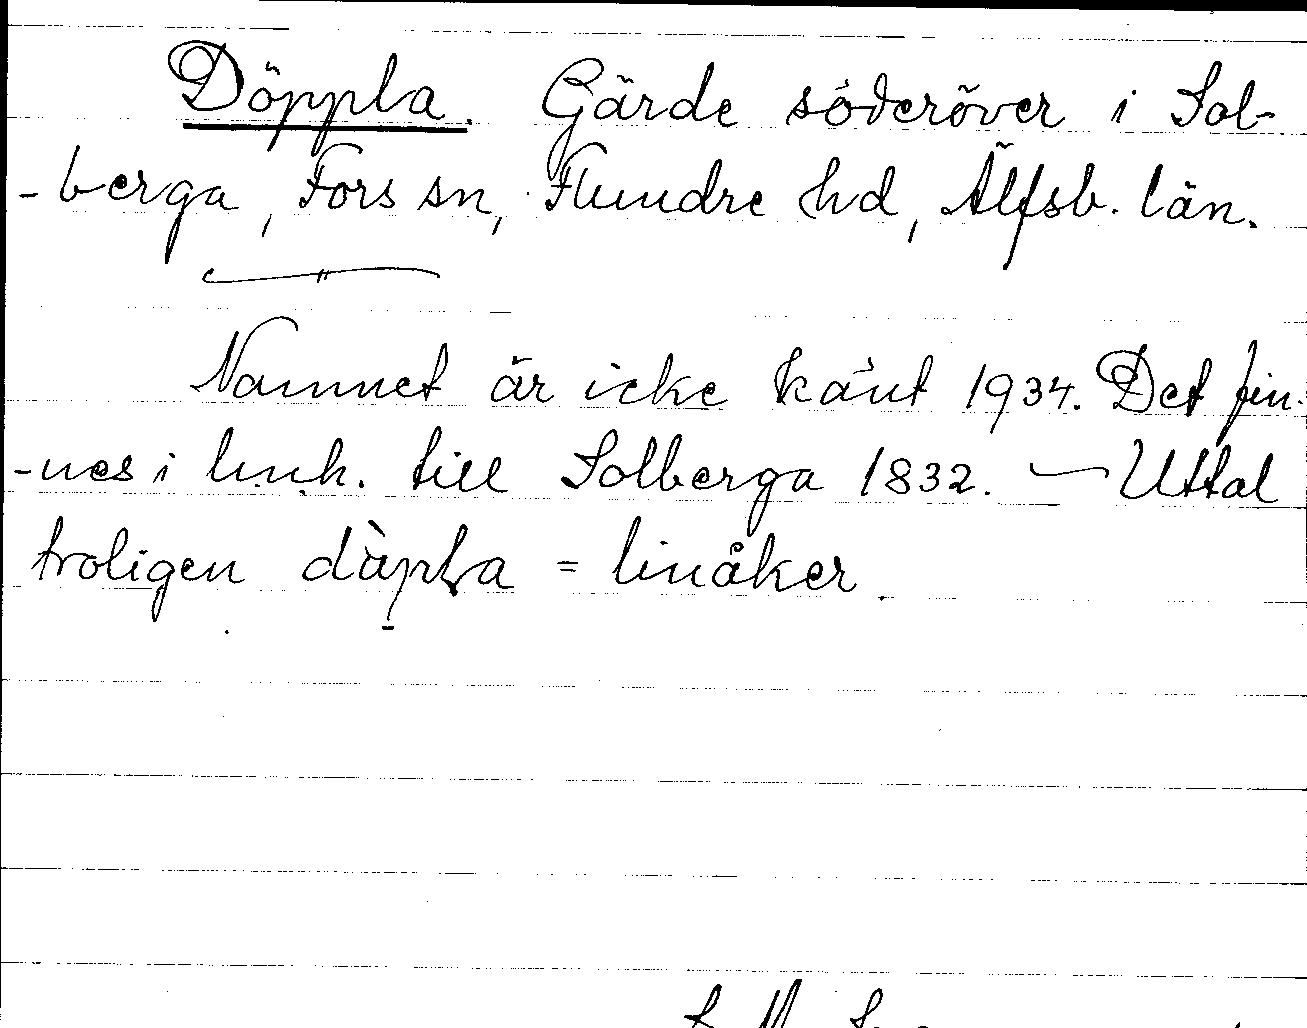 Döppla. Gärde söderöver i Sol-
-berga, Fors sn, Flundre hd, Älfsb. län.
Namnet är icke känt 1934. Det fin-
-nes i hmh. till Solberga 1832. — Uttal
troligen dàpla = linåker.